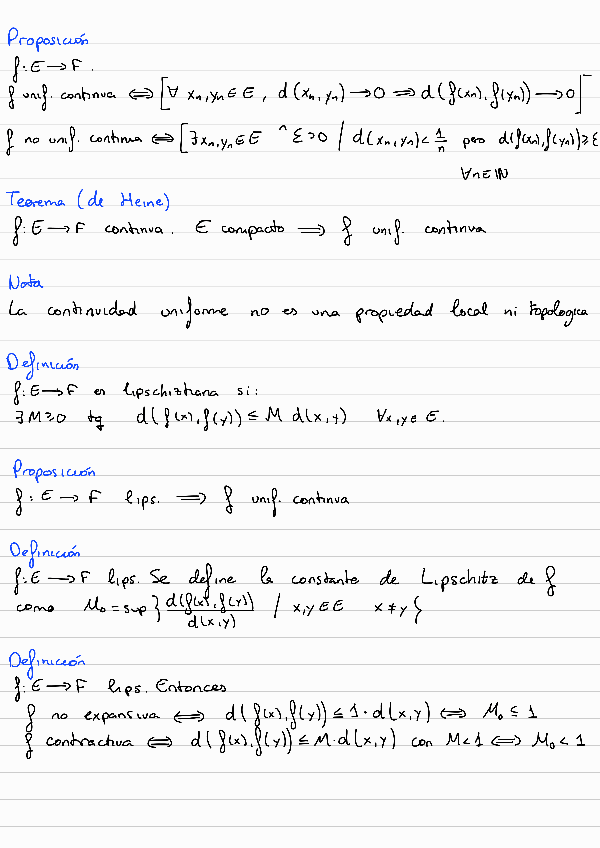 Proposición
f: E → F.
f unif. continua ⟺ [∀ xₙ, yₙ ∈ E, d(xₙ, yₙ) → 0 ⟹ d(f(xₙ), f(yₙ)) → 0]
f no unif. continua ⟺ [∃ xₙ, yₙ ∈ E ^ ε > 0 / d(xₙ, yₙ) < 1/n pero d(f(xₙ), f(yₙ)) ≥ ε
∀n ∈ ℕ
Teorema (de Heine)
f: E → F continua. E compacto ⟹ f unif. continua
Nota
La continuidad uniforme no es una propiedad local ni topologica
Definición
f: E → F es lipschiziana si:
∃ M ≥ 0 tq d(f(x), f(y)) ≤ M d(x, y) ∀x, y ∈ E.
Proposición
f: E → F lips. ⟹ f unif. continua
Definición
f: E → F lips. Se define la constante de Lipschitz de f
como M₀ = sup { d(f(x), f(y)) / d(x, y) / x, y ∈ E x ≠ y }
Definición
f: E → F lips. Entonces
f no expansiva ⟺ d(f(x), f(y)) ≤ 1 · d(x, y) ⟺ M₀ ≤ 1
f contractiva ⟺ d(f(x), f(y)) ≤ M · d(x, y) con M < 1 ⟺ M₀ < 1